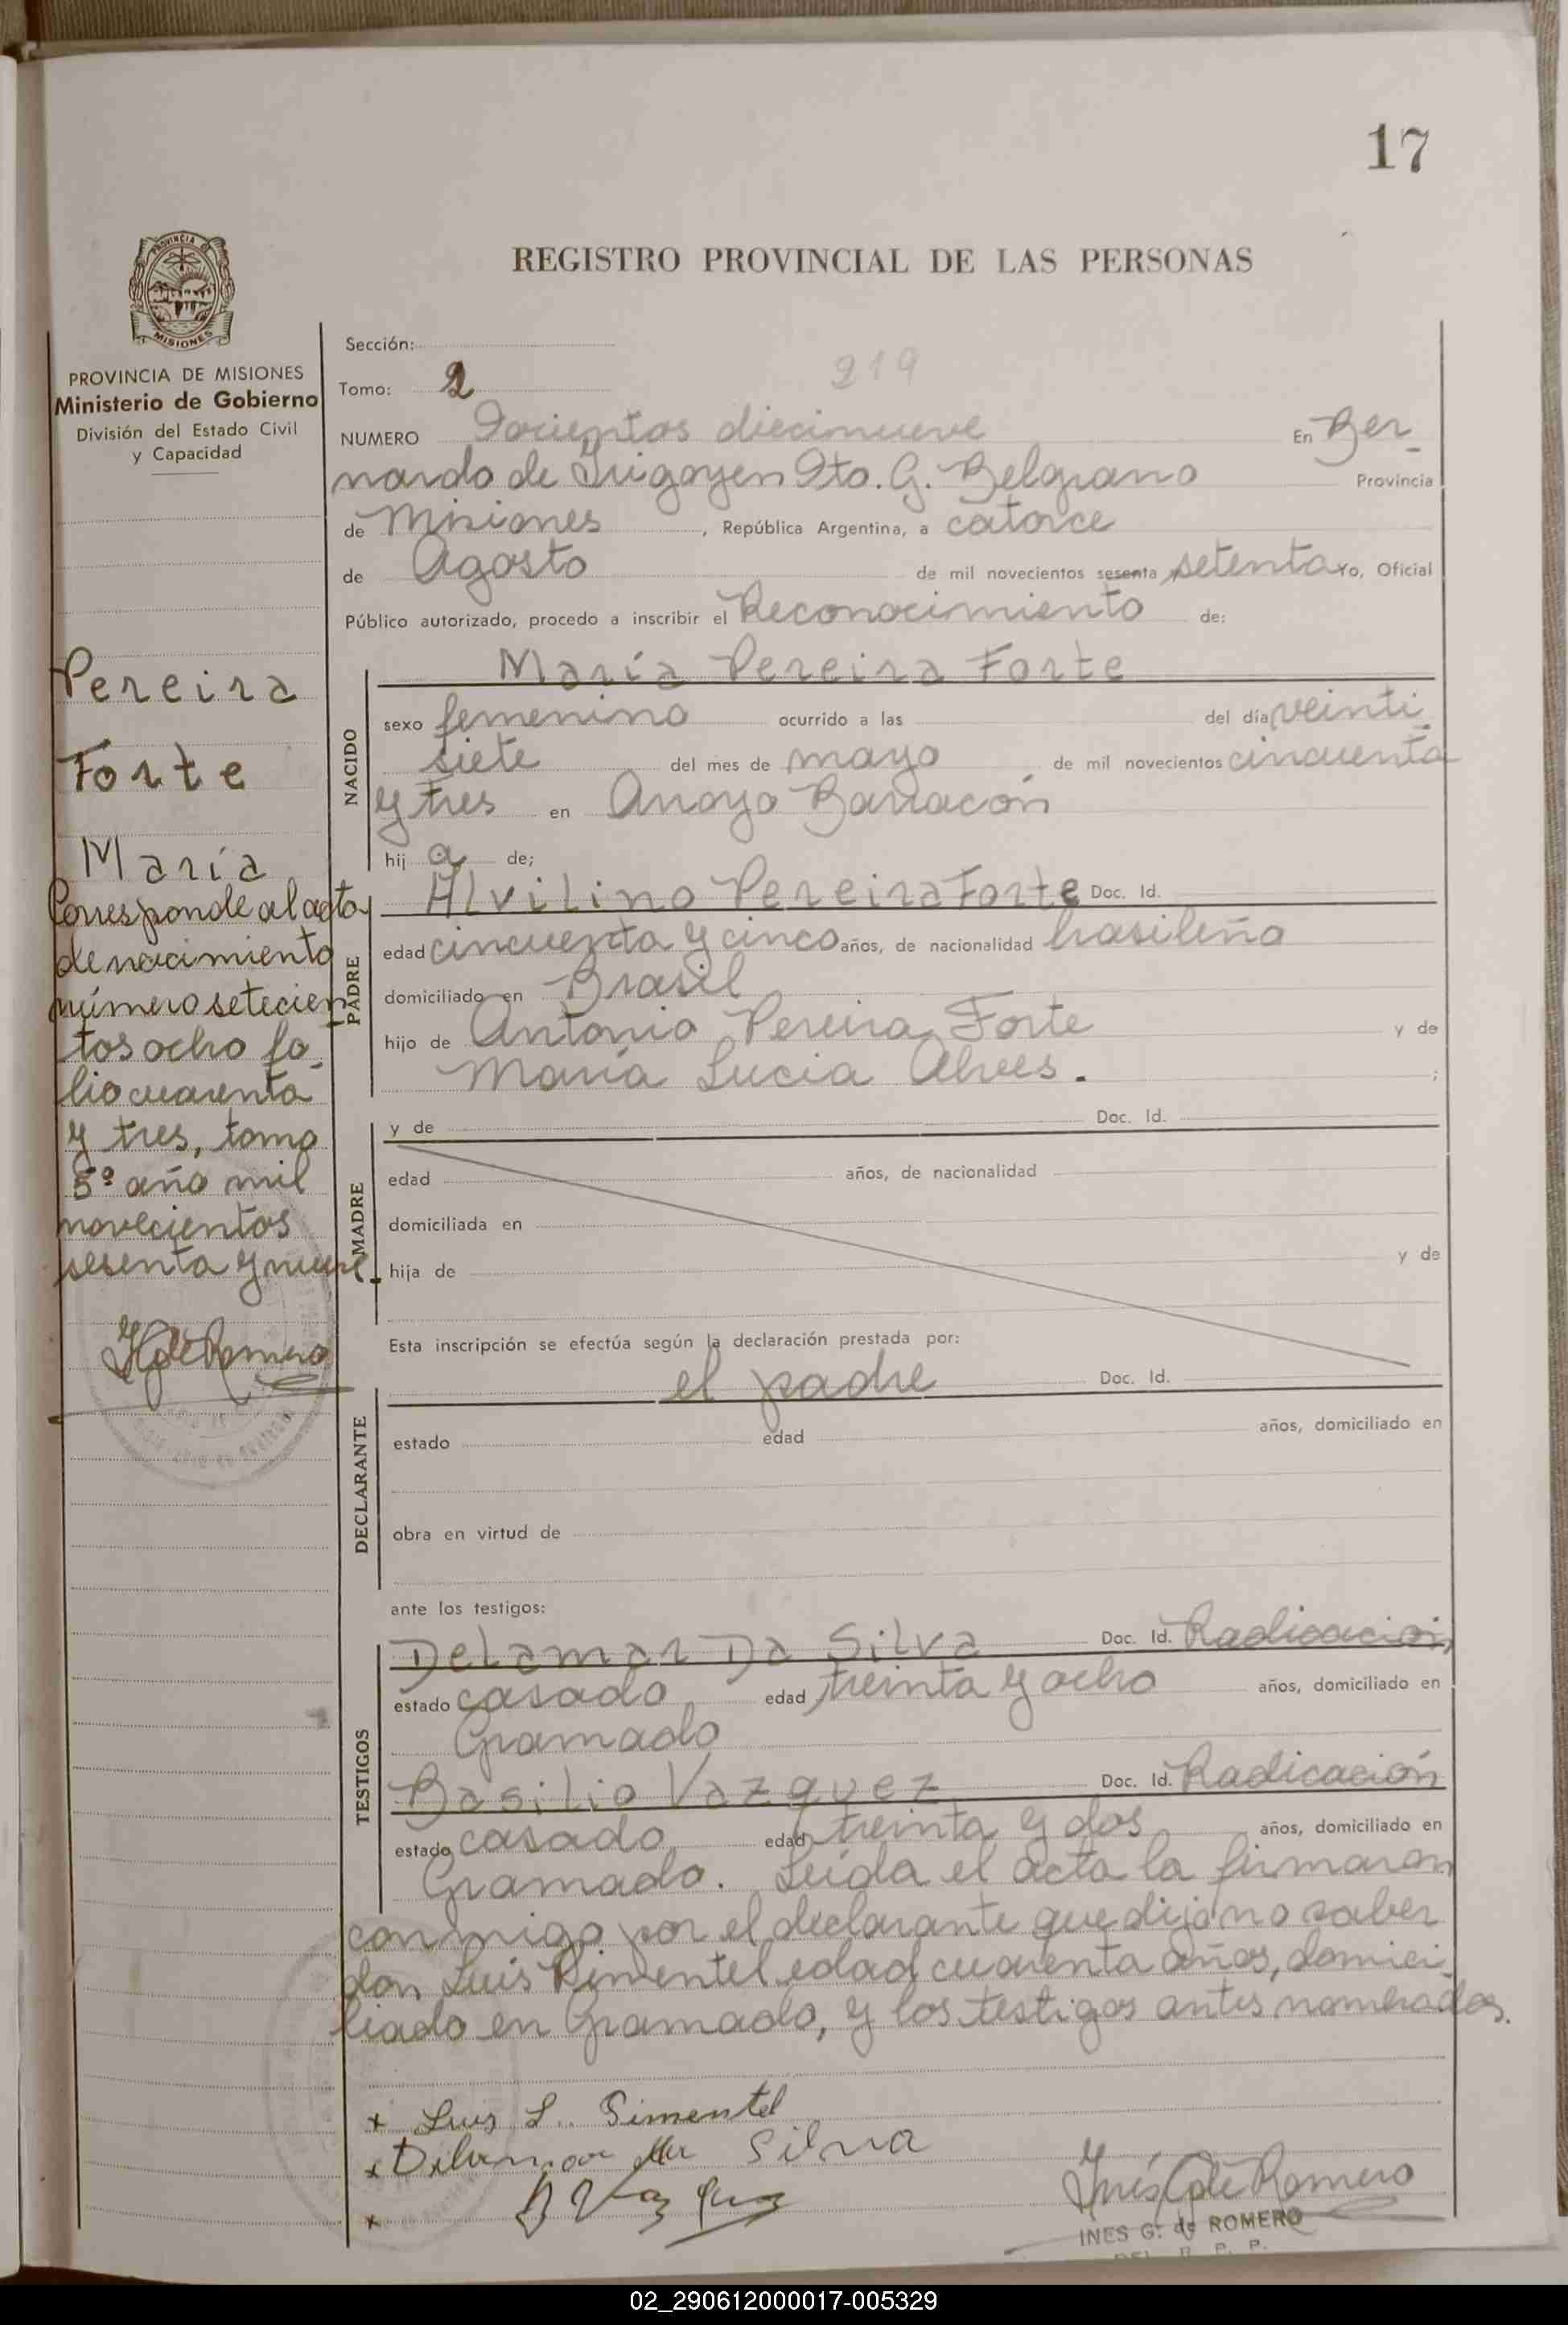 17
REGISTRO PROVINCIAL DE LAS PERSONAS
PROVINCIA DE MISIONES
Ministerio de Gobierno
División del Estado Civil
y Capacidad
Pereira
Forte
María
Corresponde al acta
de nacimiento
número setecien
tos ocho fo
lio cuarenta
y tres, tomo
5º año mil
novecientos
sesenta y nueve.
Sección:
Tomo: 2
219
NUMERO Docientos diecinueve En Ber_
nardo de Irigoyen Dto. G. Belgrano Provincia
de Misiones, República Argentina, a catorce
de Agosto de mil novecientos sesenta setenta Yo, Oficial
Público autorizado, procedo a inscribir el Reconocimiento de:
María Pereira Forte
NACIDO
sexo femenino ocurrido a las del día veinti
siete del mes de mayo de mil novecientos cincuenta
y tres en Arroyo Barracón
hij a de;
PADRE
Alvilino Pereira Forte Doc. Id.
edad cincuenta y cinco años, de nacionalidad brasileña
domiciliado en Brasil
hijo de Antonio Pereira Forte y de
María Lucia Alves. ;
MADRE
y de Doc. Id.
edad años, de nacionalidad
domiciliada en
hija de y de
Esta inscripción se efectúa según la declaración prestada por:
DECLARANTE
el padre Doc. Id.
estado edad años, domiciliado en
obra en virtud de
ante los testigos:
TESTIGOS
Delamar Da Silva Doc. Id. Radicación
estado casado edad treinta y ocho años, domiciliado en
Gramado
Basilio Vazquez Doc. Id. Radicación
estado casado edad treinta y dos años, domiciliado en
Gramado. Leída el acta la firmaron
conmigo por el declarante que dijo no saber
don Luis Pimentel edad cuarenta años, domici_
liado en Gramado, y los testigos antes nombrados.
x Luis L. Pimentel
x Silva
x
Inés G de Romero
INES G. de ROMERO
DEL R. P. P.
02_290612000017-005329